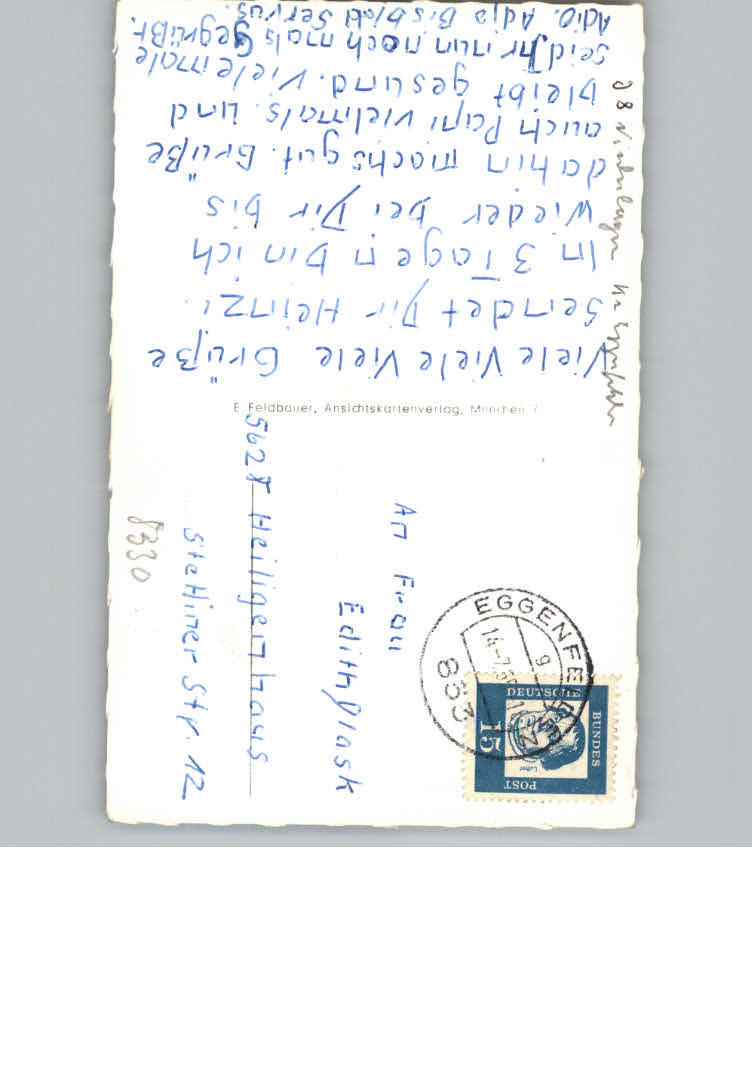 Viele Viele Viele Grüße
Sendet Dir Heinz.
In 3 Tagen bin ich
wieder bei Dir bis
dahin machs gut. Grüße
auch Papi vielmals. und
bleibt gesund. Vielemale
seid Ihr nun noch mals Gegrüßt.
Adio. Adio Bis blad Servus.
E. Feldbauer, Ansichtskartenverlag, München
An Frau
Edith Plask
5628 Heiligenhaus
Stettiner Str. 12
8330
28
EGGENFELDEN
833
14-7
DEUTSCHE
BUNDES
POST
15
Luther